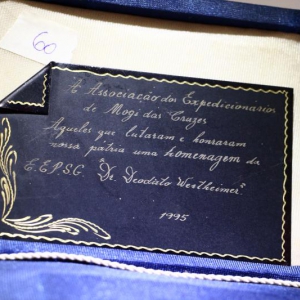 60
À Associação dos Expedicionários
de Mogi das Cruzes
Aqueles que lutaram e honraram
nossa pátria uma homenagem da
E.E.P.S.G. "Dr. Deodato Wertheimer".
1995